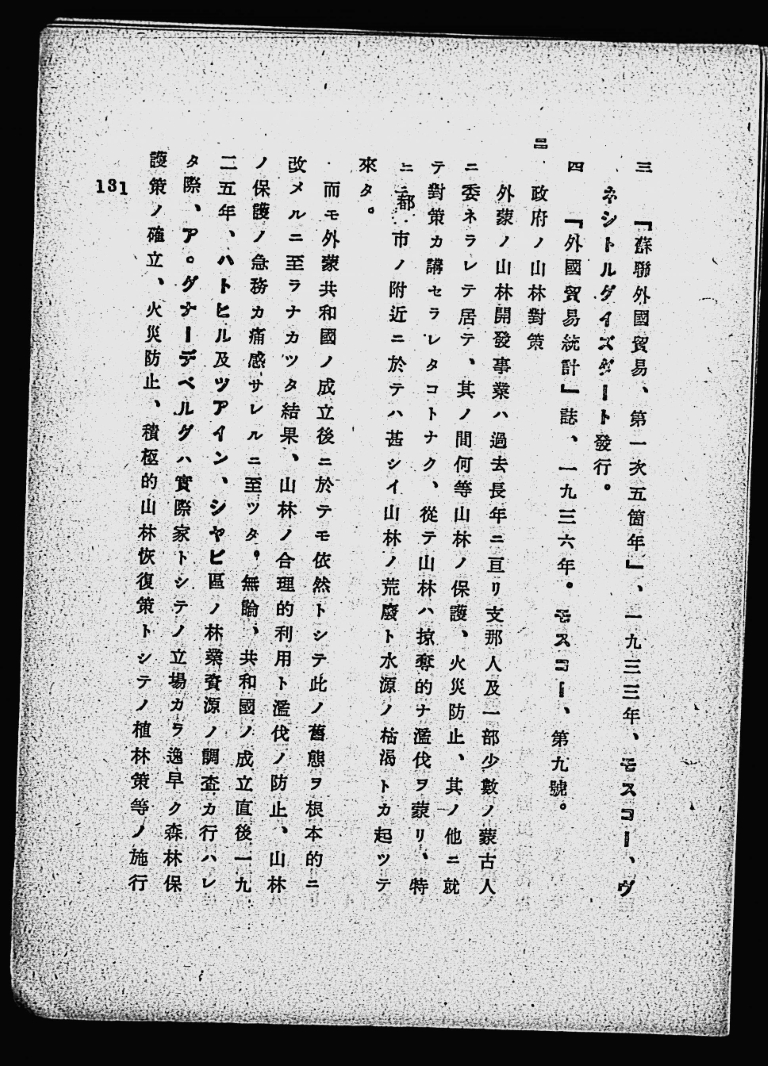 三 「蘇聯外國貿易、第一次五箇年」、一九三三年、モスコー、ヴ
ネシトルグイズダート發行。
四 「外國貿易統計」誌、一九三六年。モスコー、第九號。
二 政府ノ山林對策
外蒙ノ山林開發事業ハ過去長年ニ亘リ支那人及一部少數ノ蒙古人
ニ委ネラレテ居テ、其ノ間何等山林ノ保護、火災防止、其ノ他ニ就
テ對策カ講セラレタコトナク、從テ山林ハ掠奪的ナ濫伐ヲ蒙リ、特
ニ都市ノ附近ニ於テハ甚シイ山林ノ荒廢ト水源ノ枯渴トカ起ツテ
來タ。
而モ外蒙共和國ノ成立後ニ於テモ依然トシテ此ノ舊態ヲ根本的ニ
改メルニ至ラナカツタ結果、山林ノ合理的利用ト濫伐ノ防止、山林
ノ保護ノ急務カ痛感サレルニ至ツタ。無論、共和國ノ成立直後一九
二五年、ハトヒル及ツアイン、シヤビ區ノ林業資源ノ調查カ行ハレ
タ際、ア。グナーデベルグハ實際家トシテノ立場カラ逸早ク森林保
護策ノ確立、火災防止、積極的山林恢復策トシテノ植林策等ノ施行
131